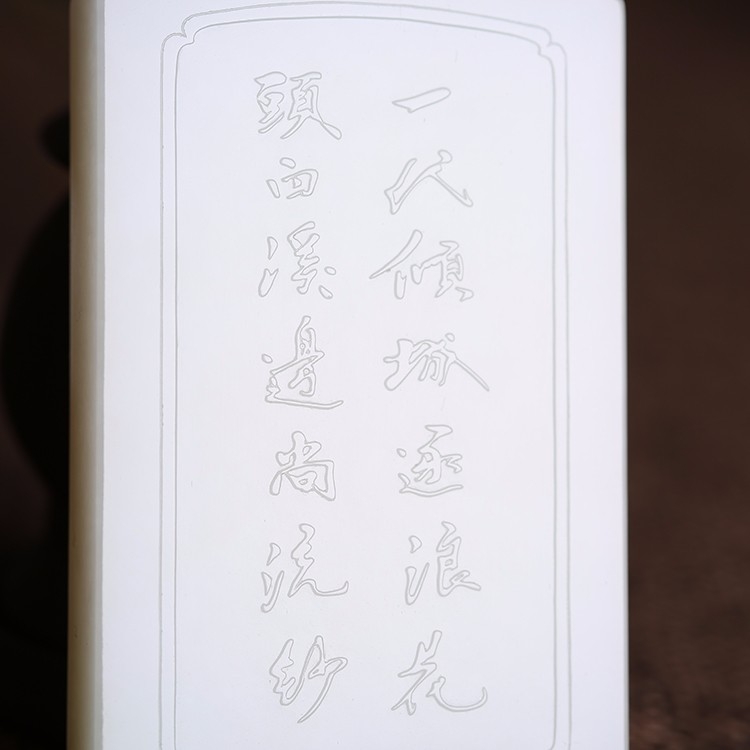 一代傾城逐浪花
頭白溪邊尚浣紗